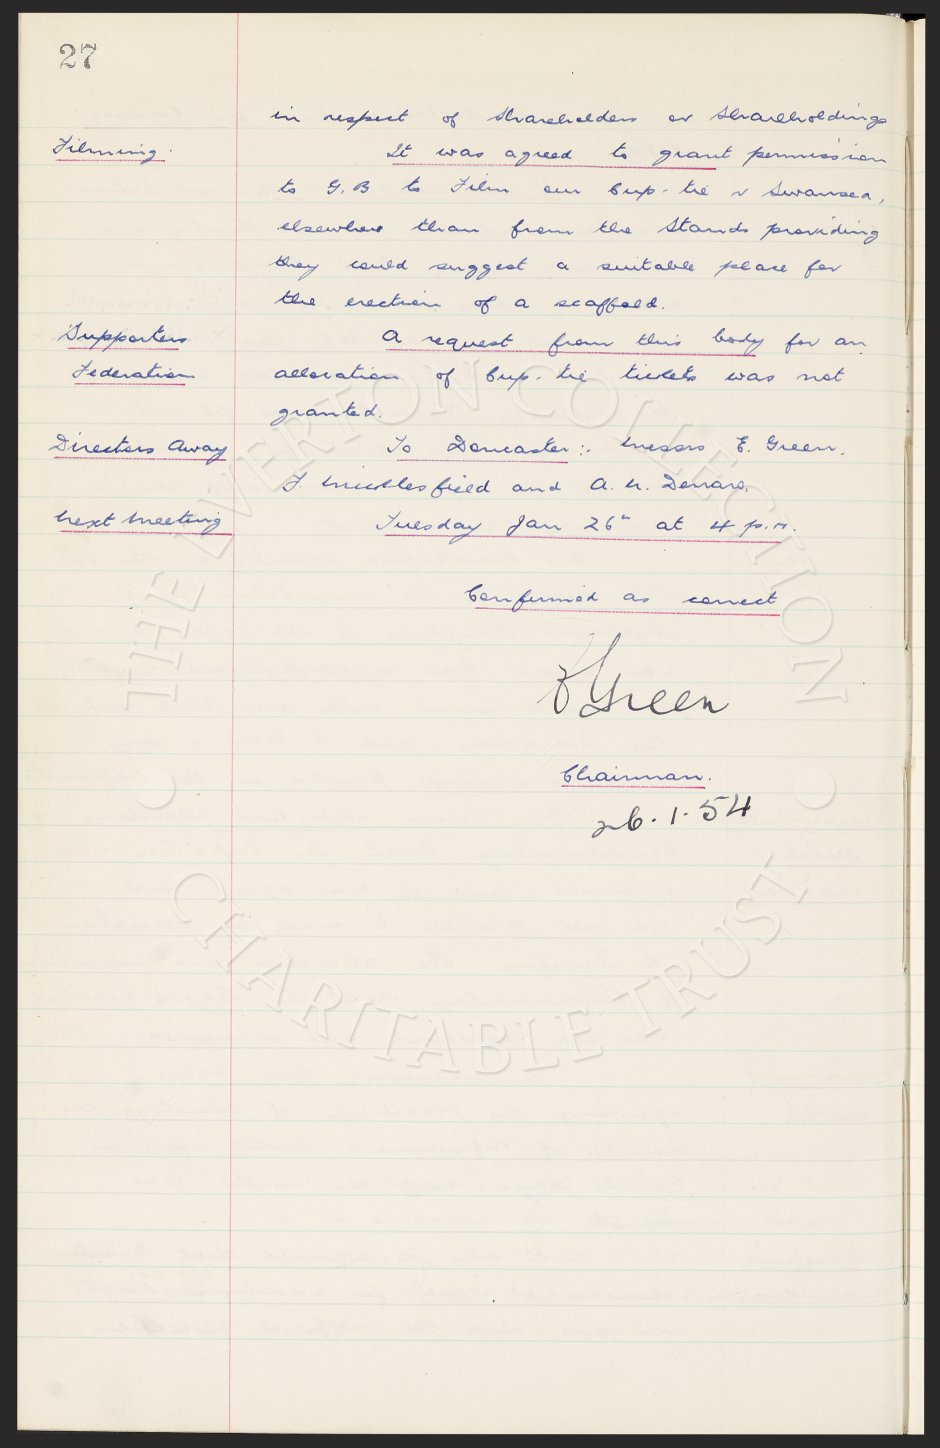 27
in respect of Shareholders or Shareholdings
Filming. It was agreed to grant permission
to G.B to Film our Cup-tie v Swansea,
elsewhere than from the Stands providing
they could suggest a suitable place for
the erection of a scaffold.
Supporters A request from this body for an
Federation allocation of Cup-tie tickets was not
granted.
Directors Away To Doncaster:- Messrs E. Green.
F. Micklesfield and A. W. Denaro.
Next Meeting Tuesday Jan 26th at 4 p.m.
Confirmed as correct
E Green
Chairman.
26.1.54
THE EVERTON COLLECTION
CHARITABLE TRUST